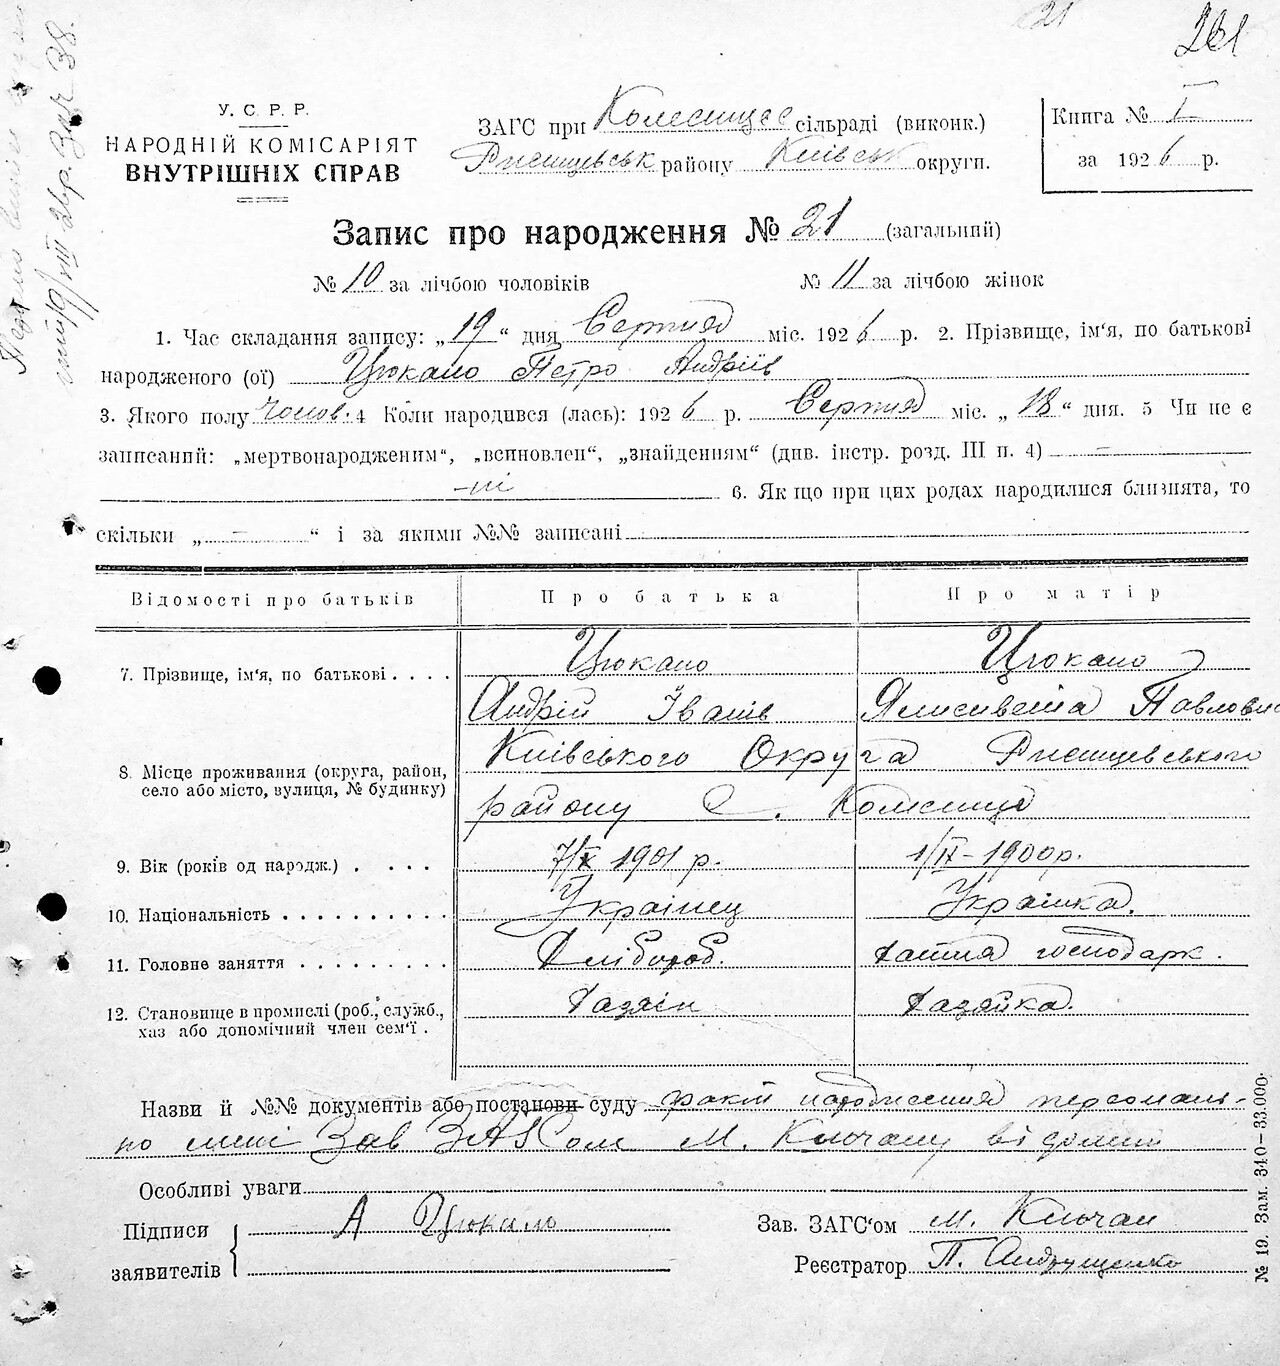 21
261
У. С. Р. Р.
НАРОДНІЙ КОМІСАРІЯТ
ВНУТРІШНІХ СПРАВ
ЗАГС при Колесищес сільраді (виконк.)
Ржищівськ району Київськ округи.
Книга № I
за 1926 р.
Запис про народження № 21 (загальний)
№ 10 за лічбою чоловіків № 11 за лічбою жінок
1. Час складання запису: „19“ дня Серпня міс. 1926 р. 2. Прізвище, ім‘я, по батькові
народженого (ої) Цюкало Петро Андріїв
3. Якого полу чолов. 4 Коли народився (лась): 1926 р. Серпня міс. „18“ дня. 5 Чи не є
записаний: „мертвонародженим“, „всиновлен“, „знайденям“ (див. інстр. розд. III п. 4) –
–ні 6. Як що при цих родах народилися близнята, то
скільки „ – “ і за якими №№ записані
Відомості про батьків Про батька Про матір
7. Прізвище, ім‘я, по батькові . . . . Цюкало Цюкало
Андрій Іванів Ялисивета Павловна
8. Місце проживання (округа, район, село або місто, вулиця, № будинку) Київського Округа Ржищевського
району С. Колесище
9. Вік (років од народж.) . . . . 7/X 1901 р. 1/IX–1900р.
10. Національність . . . . . . . . . . Українец Українка.
11. Головне заняття . . . . . . . . . Хлібороб. хатня господарк.
12. Становище в промислі (роб., служб., хаз або допомічний член сем‘ї . Хазяїн Хазяйка.
Назви й №№ документів або постанови суду факт народження персональ-
но мені Зав ЗАГСом М. Ключану відомий
Особливі уваги
Підписи заявителів А Цюкало
Зав. ЗАГС‘ом М. Ключан
Реєстратор П. Андрущенко
№ 19. Зам. 340–33.000.